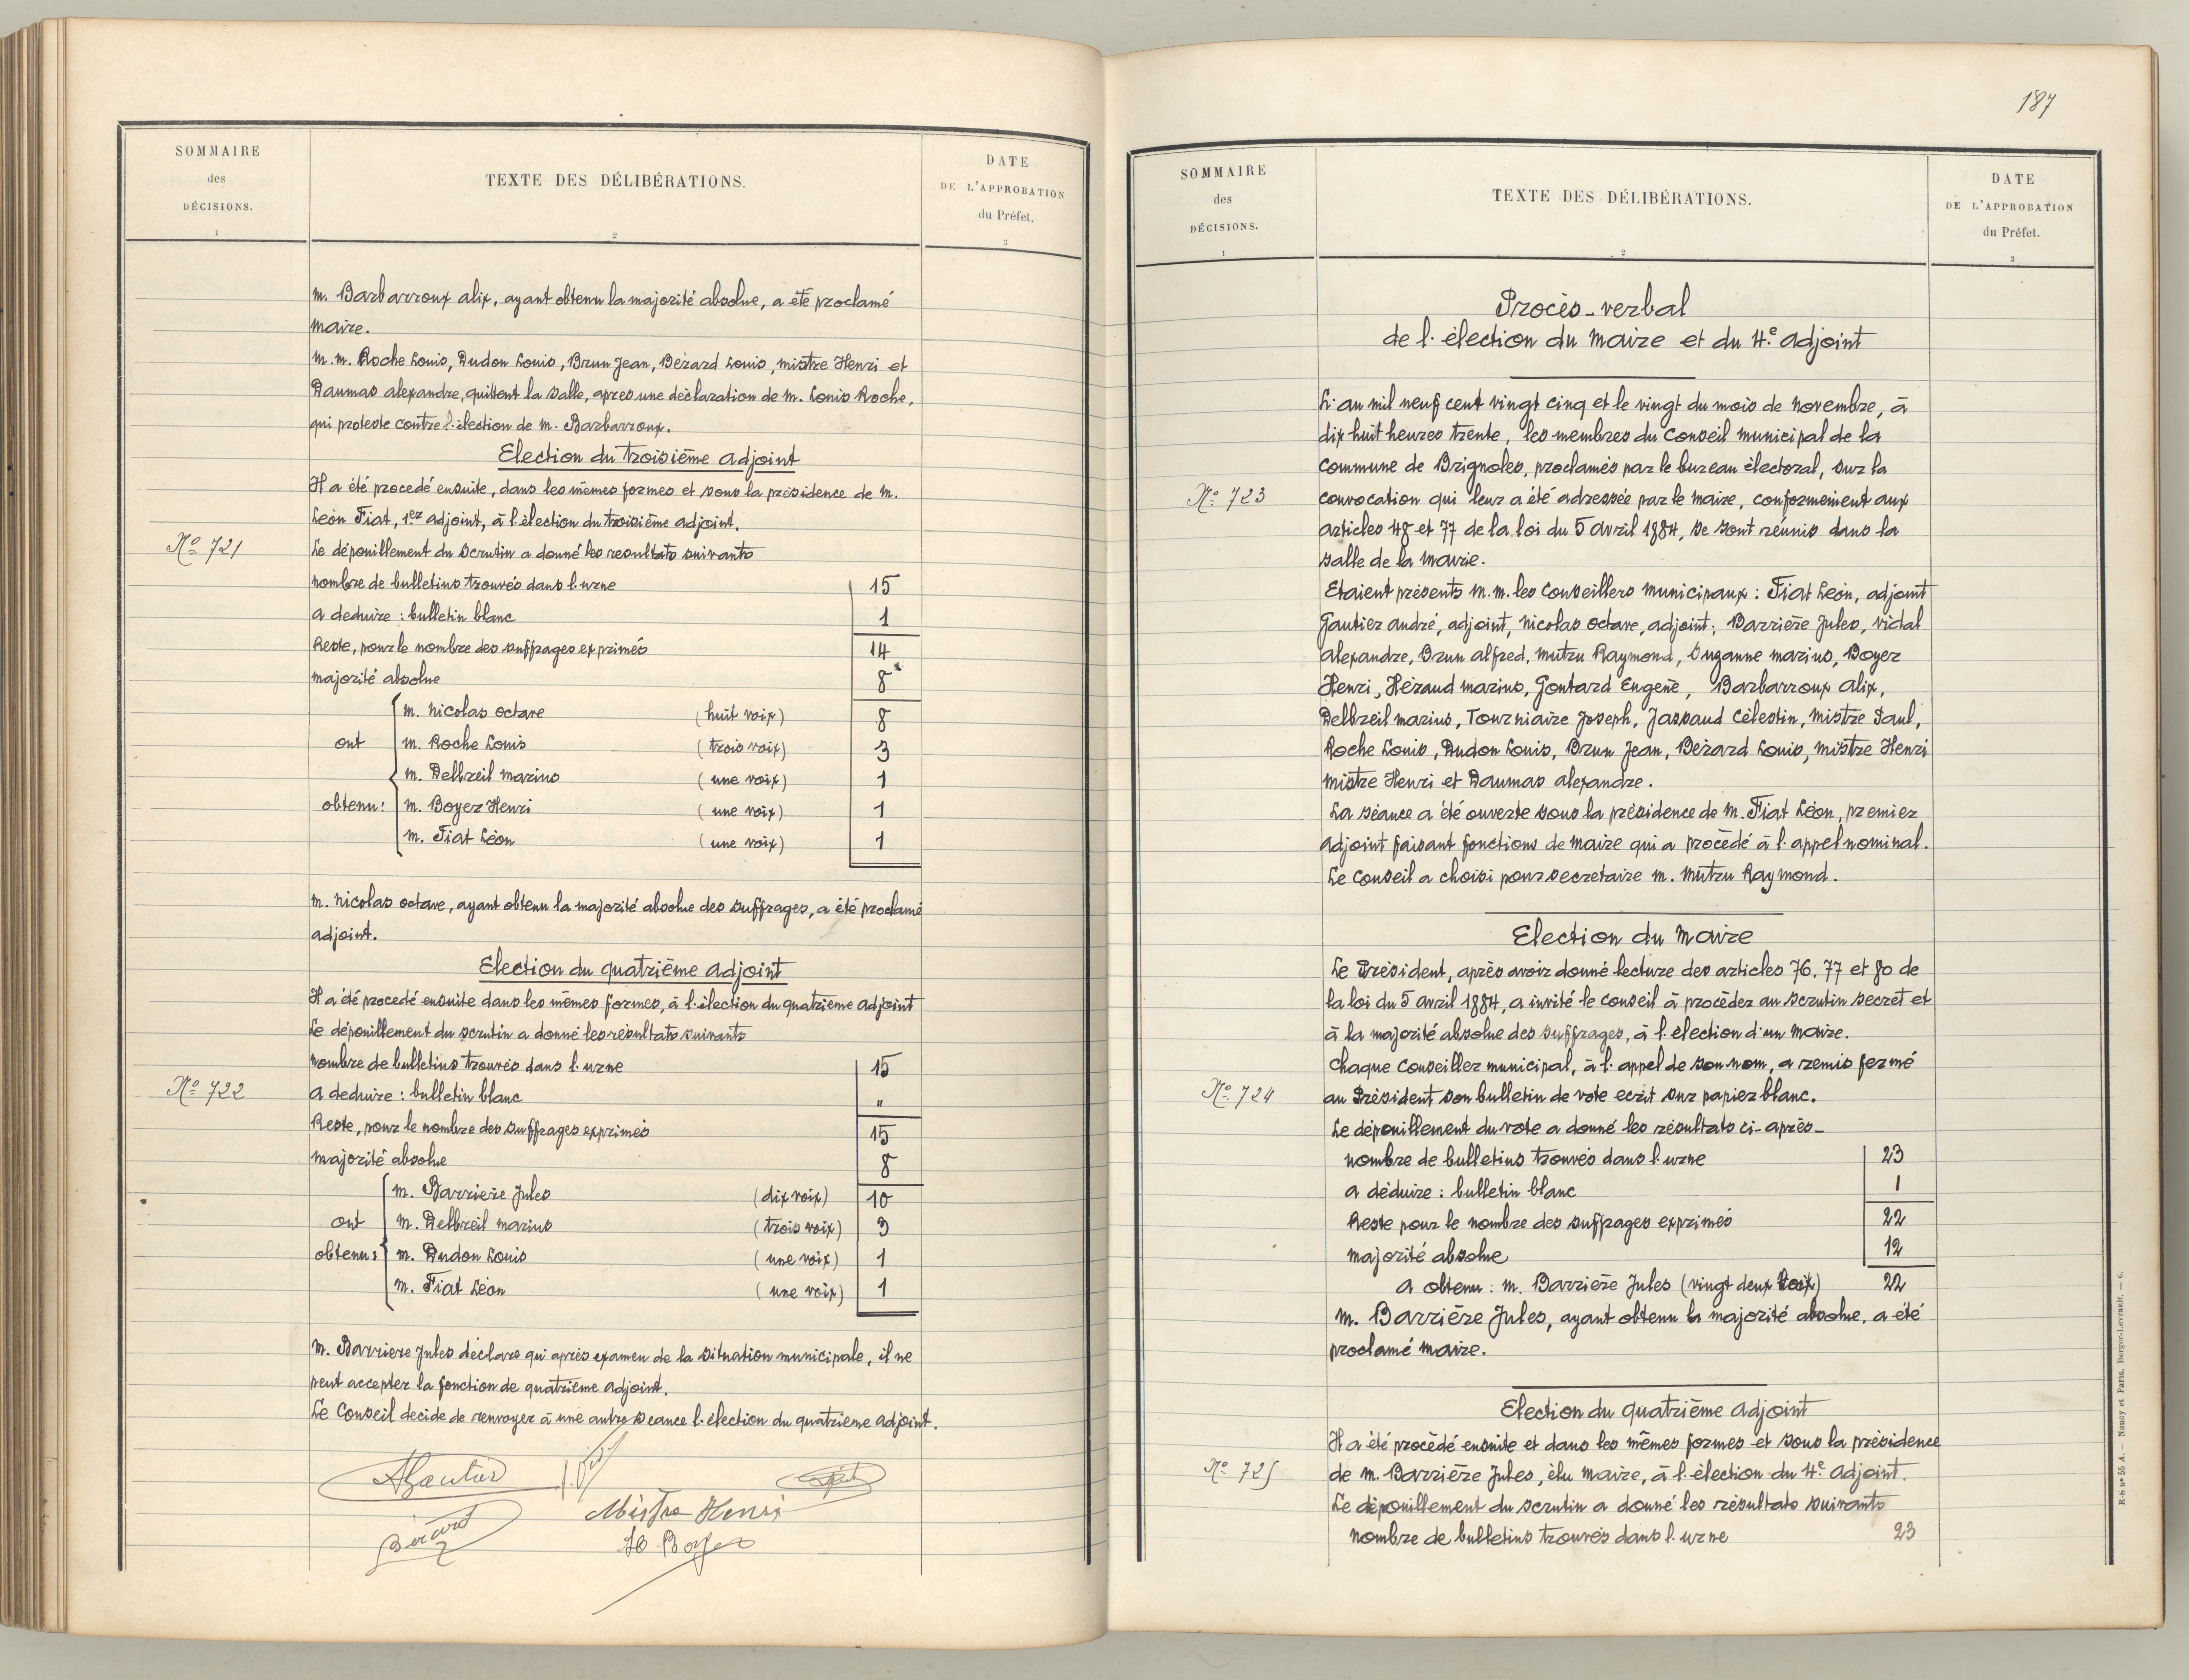 SOMMAIRE
des
DÉCISIONS.
1
TEXTE DES DÉLIBÉRATIONS.
2
DATE
DE L'APPROBATION
du Préfet.
3
M. Barbarroux Alix, ayant obtenu la majorité absolue, a été proclamé
Maire.
M.M. Roche Louis, Dudon Louis, Brun Jean, Bérard Louis, Mistre Henri et
Daumas Alexandre, quittent la salle, apres une déclaration de M. Louis Roche,
qui proteste contre l'élection de M. Barbarroux.
Election du troisième adjoint
Il a été procedé ensuite, dans les mêmes formes et sous la présidence de M.
Léon Fiat, 1er adjoint, à l'élection du troisième adjoint.
No 721
Le dépouillement du scrutin a donné les resultats suivants
nombre de bulletins trouvés dans l'urne 15
a deduire : bulletin blanc 1
Reste, pour le nombre des suffrages exprimés 14
majorité absolue 8
M. Nicolas Octave (huit voix) 8
ont M. Roche Louis (trois voix) 3
M. Delbreil Marius (une voix) 1
obtenu : M. Boyer Henri (une voix) 1
M. Fiat Léon (une voix) 1
M. Nicolas Octave, ayant obtenu la majorité absolue des suffrages, a été proclamé
adjoint.
Election du quatrième adjoint
Il a été procedé ensuite dans les mêmes formes, à l'élection du quatrieme adjoint
Le dépouillement du scrutin a donné les résultats suivants
nombre de bulletins trouvés dans l'urne 15
No 722
a deduire : bulletin blanc "
Reste, pour le nombre des suffrages exprimés 15
majorité absolue 8
M. Barriere Jules (dix voix) 10
ont M. Delbreil Marius (trois voix) 3
obtenu : M. Dudon Louis (une voix) 1
M. Fiat Léon (une voix) 1
M. Barriere Jules déclare qui après examen de la situation municipale, il ne
peut accepter la fonction de quatrième adjoint.
Le Conseil decide de renvoyer à une autre séance l'élection du quatrieme adjoint.
AGautier
Bérard
Mistre Henri
H Boyer
187
SOMMAIRE
des
DÉCISIONS.
1
TEXTE DES DÉLIBÉRATIONS.
2
DATE
DE L'APPROBATION
du Préfet.
3
Procès-verbal
de l'élection du Maire et du 4e adjoint
L'an mil neuf cent vingt cinq et le vingt du mois de Novembre, à
dix huit heures trente, les membres du Conseil Municipal de la
Commune de Brignoles, proclamés par le bureau électoral, sur la
No 723
convocation qui leur a été adressée par le Maire, conformément aux
articles 48 et 77 de la loi du 5 avril 1884, se sont réunis dans la
salle de la Mairie.
Etaient présents M.M. les Conseillers Municipaux : Fiat Léon, adjoint
Gautier André, adjoint, Nicolas Octave, adjoint ; Barrière Jules, Vidal
Alexandre, Brun Alfred, Mutru Raymond, Suzanne Marius, Boyer
Henri, Héraud Marius, Gontard Eugene, Barbarroux Alix,
Delbreil Marius, Tourniaire Joseph, Jassaud Célestin, Mistre Paul,
Roche Louis, Dudon Louis, Brun Jean, Bérard Louis, Mistre Henri
Mistre Henri et Daumas Alexandre.
La séance a été ouverte sous la présidence de M. Fiat Léon, premier
adjoint faisant fonctions de Maire qui a procédé à l'appel nominal.
Le Conseil a choisi pour secretaire M. Mutru Raymond.
Election du Maire
Le Président, après avoir donné lecture des articles 76, 77 et 80 de
la loi du 5 avril 1884, a invité le Conseil à procéder au scrutin secret et
à la majorité absolue des suffrages, à l'élection d'un Maire.
Chaque Conseiller municipal, à l'appel de son nom, a remis fermé
No 724
au Président son bulletin de vote ecrit sur papier blanc.
Le dépouillement du vote a donné les résultats ci-après -
nombre de bulletins trouvés dans l'urne 23
a déduire : bulletin blanc 1
Reste pour le nombre des suffrages exprimés 22
Majorité absolue 12
a obtenu : M. Barrière Jules (vingt deux voix) 22
M. Barrière Jules, ayant obtenu la majorité absolue, a été
proclamé Maire.
Election du quatrième adjoint
Il a été procédé ensuite et dans les mêmes formes et sous la présidence
No 725
de M. Barrière Jules, élu Maire, à l'élection du 4e adjoint.
Le dépouillement du scrutin a donné les résultats suivants
nombre de bulletins trouvés dans l'urne 23
R-S no 55 A. — Nancy et Paris, Berger-Levrault. — 6.